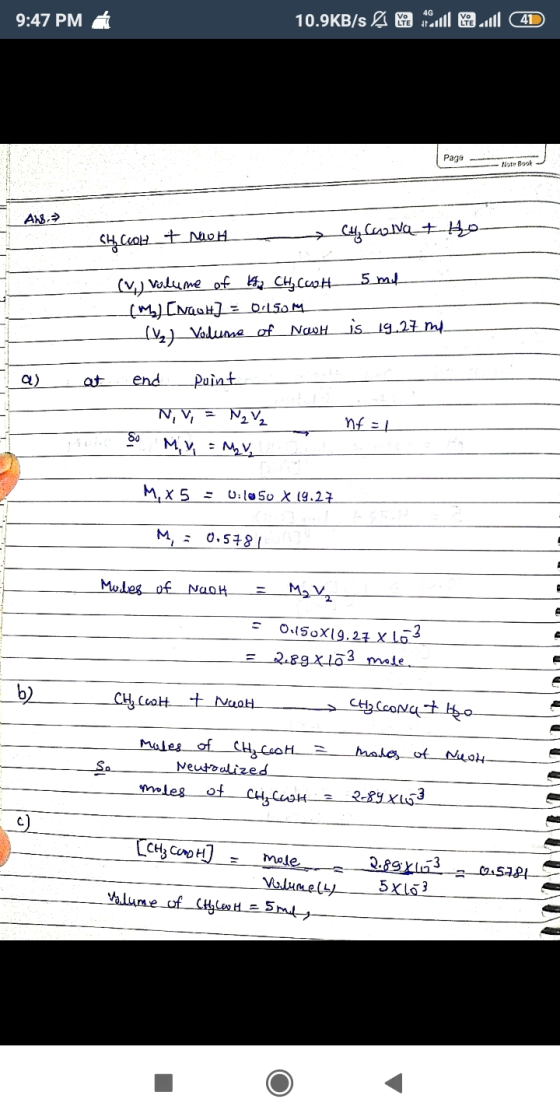 9:47 PM 10.9KB/s Vo LTE 4G Vo LTE 41
Page
Note Book
Ans.→
CH3COOH + NaOH → CH3COONa + H2O
(V1) Volume of CH3COOH 5 ml
(M2) [NaOH] = 0.150M
(V2) Volume of NaOH is 19.27 ml
a) at end point
N1V1 = N2V2 → nf = 1
So M1V1 = M2V2
M1 × 5 = 0.1050 × 19.27
M1 = 0.5781
Moles of NaOH = M2V2
= 0.150×19.27 × 10-3
= 2.89×10-3 mole.
b) CH3COOH + NaOH → CH3COONa + H2O
Moles of CH3COOH = moles of NaOH
So Neutralized
moles of CH3COOH = 2.89×10-3
c)
[CH3COOH] = mole / Volume(L) = 2.89×10-3 / 5×10-3 = 0.5781
Volume of CH3COOH = 5ml,